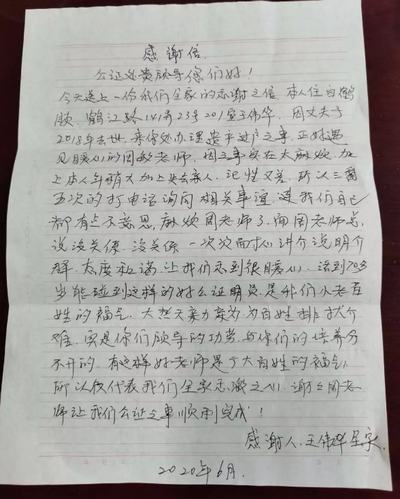 感谢信
公证处贵领导你们好！
今天送上一份我们全家的感谢之信 本人住白鹤
鹤江路141弄23号201室王伟华 因丈夫于
2018年去世 来你处办理遗产过户之事 正好遇
见暖心的周教老师 因之事实在太麻烦 加
上本人年龄大加上失去亲人 记性又差 所以三番
五次的打电话询问相关事谊 连我们自己
都有点不意思 麻烦周老师了 而周老师总
说没关系 没关系 一次次耐心讲介说明介
群 态度极满 让我们感到很暖心 活到70多
岁能碰到这样的好公证员是我们小老百
姓的福气 大想天亲力亲为为百姓排扰介
难 实是你们领导的功劳 与你们的培养分
不开的 有这样好老师是广大百姓的福气
所以仅代表我们全家感激之心 谢谢周老
师让我们公证之事顺利完成！
感谢人 王伟华全家
2020年6月